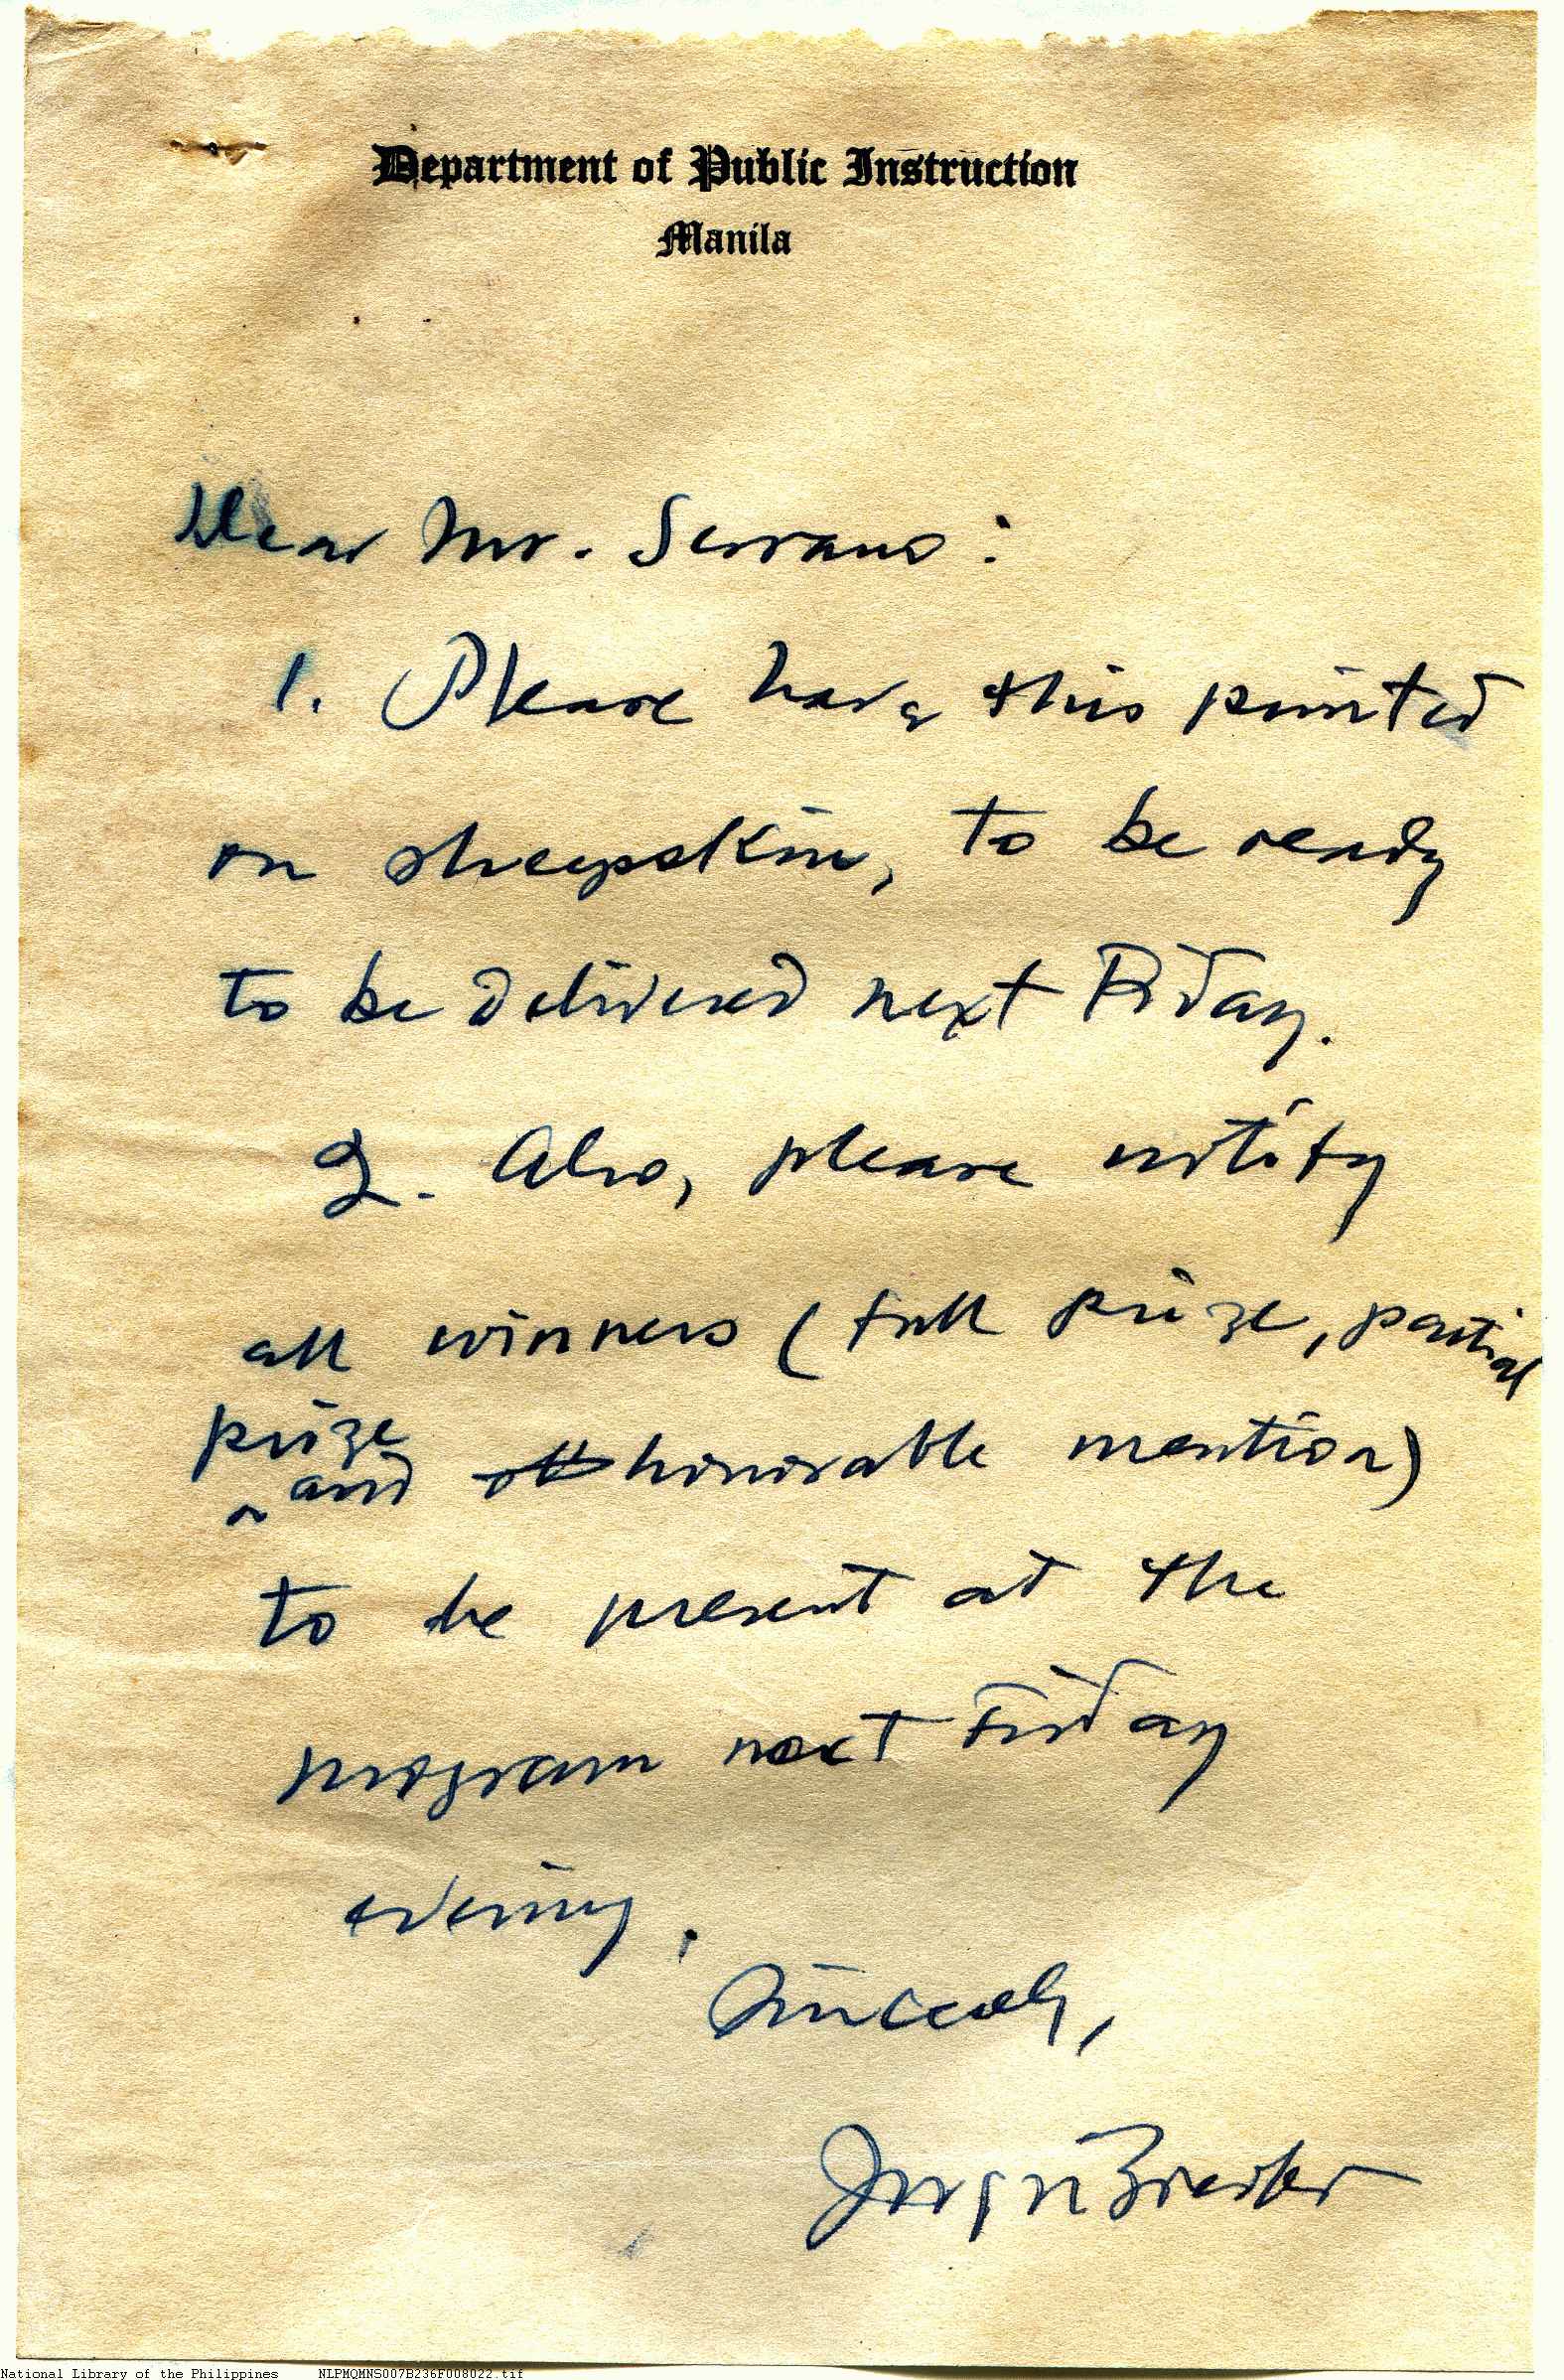 Department of Public Instruction
Manila
Dear Mr. Serrano:
1. Please have this printed
on sheepskin, to be ready
to be delivered next Friday.
2. Also, please notify
all winners (full prize, partial
prize
and honorable mention)
to be present at the
program next Friday
evening.
Sincerely,
Jorge Bocobo
National Library of the Philippines NLPMQMNS007B236F008022.tif